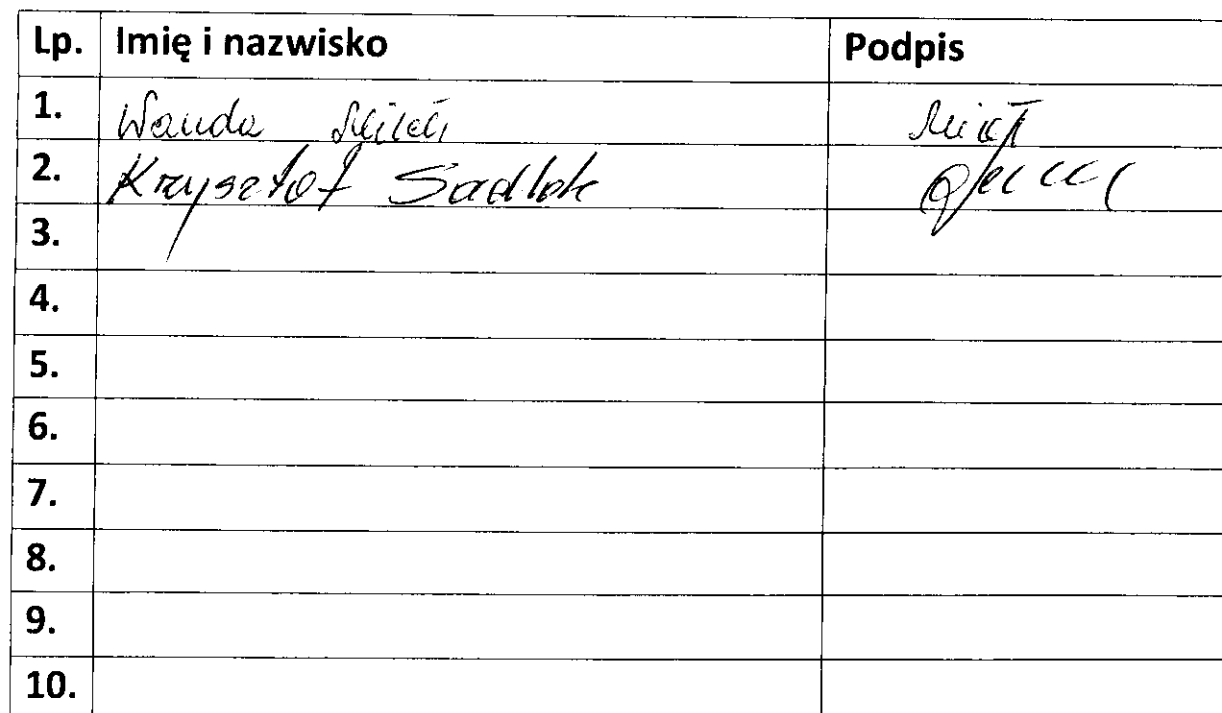 Lp. Imię i nazwisko Podpis
1. Wanda
2. Krzysztof Sadlok
3.
4.
5.
6.
7.
8.
9.
10.